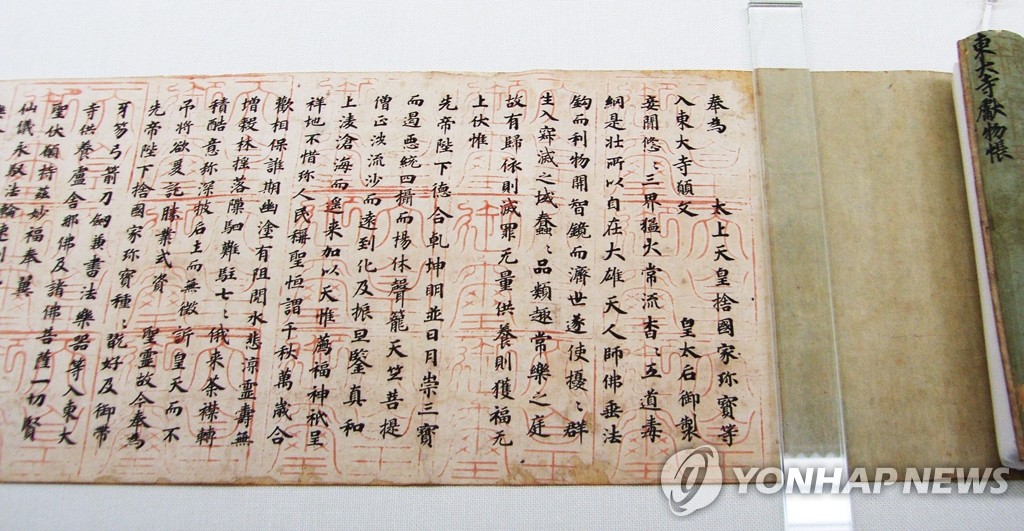 東大寺獻物帳
奉為　太上天皇捨國家珎寶等
入東大寺願文　皇太后御製
妾聞悠々三界猛火常流杳々五道毒
網是壯所以自在大雄天人師佛垂法
鈎而利物開智鏡而濟世遂使擾々群
生入寂滅之域蠢々品類趣常樂之庭
故有歸依則滅罪无量供養則獲福无
上伏惟
先帝陛下德合乾坤明並日月崇三寶
而遏惡統四攝而揚休聲籠天竺菩提
僧正涉流沙而遠到化及振旦鑒真和
上凌滄海而遙来加以天惟薦福神祇呈
祥地不惜珎人民稱聖恒謂千秋萬歳合
歡相保誰期幽塗有阻閱水悲涼靈壽無
増穀林揺落隙駟難駐七々俄来荼襟轉
積酷意弥深披后土而無徴訴皇天而不
吊将欲爰託勝業式資　聖靈故今奉為
先帝陛下捨國家珎寶種々翫好及御帶
牙笏弓箭刀劔兼書法樂器等入東大
寺供養盧舍那佛及諸佛菩薩一切賢
聖伏願持茲妙福奉翼
仙儀永馭法輪速到
YONHAP NEWS